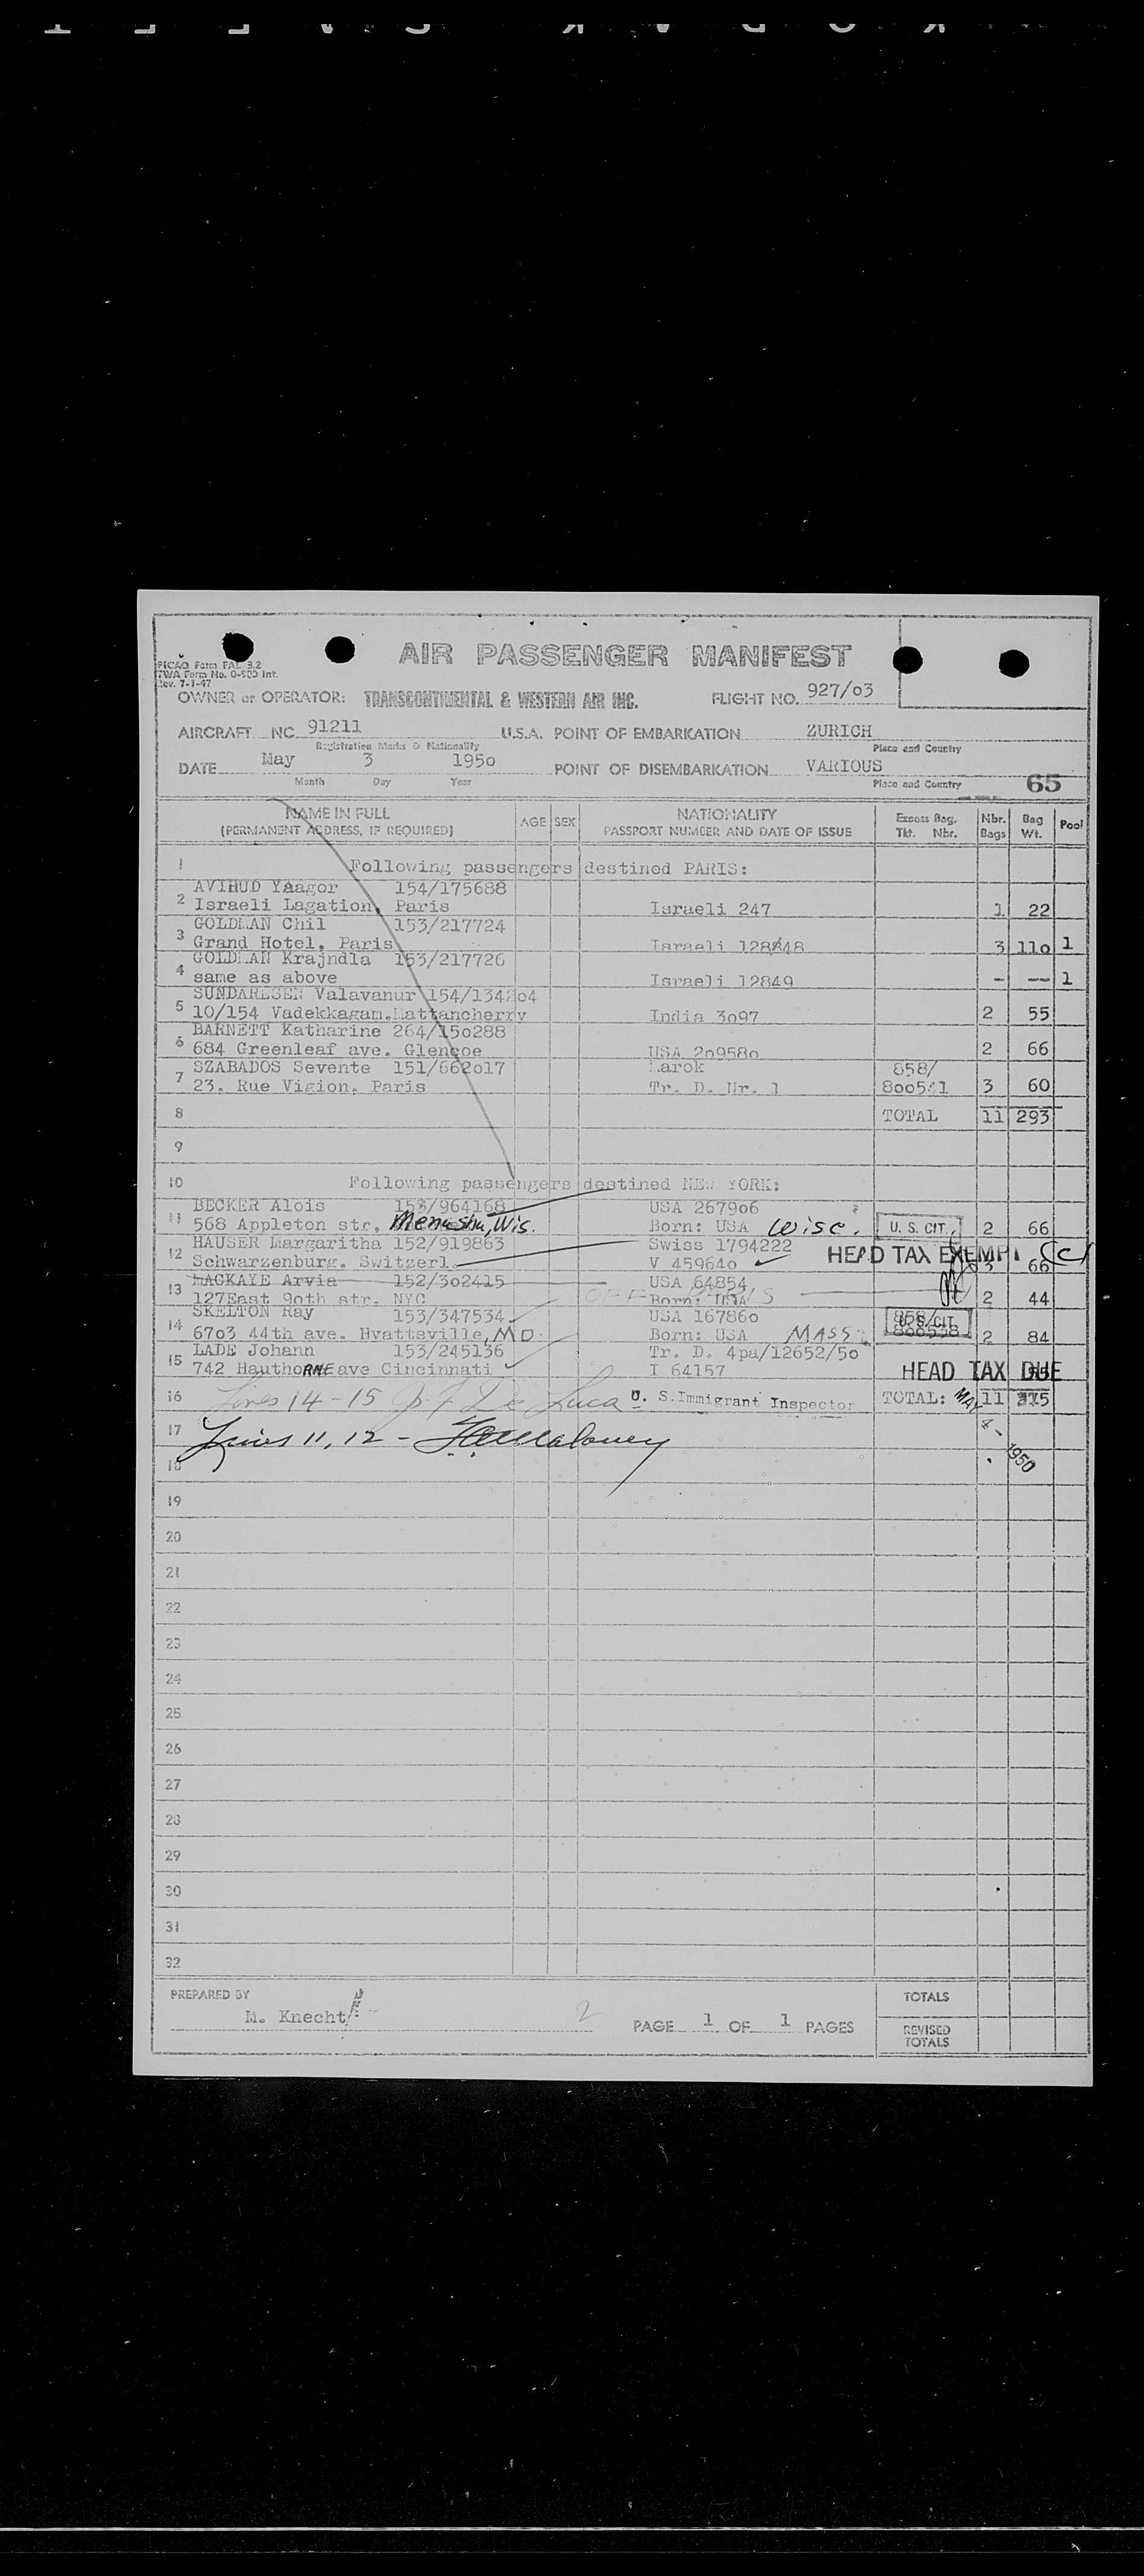 AIR PASSENGER MANIFEST
PICAO Form FAL 3.2
TWA Form No. O-500 Int.
Rev. 7-1-47
OWNER or OPERATOR: TRANSCONTINENTAL & WESTERN AIR INC. FLIGHT NO. 927/03
AIRCRAFT NC 91211 U.S.A. POINT OF EMBARKATION ZURICH
Registration Marks & Nationality Place and Country
DATE May 3 1950 POINT OF DISEMBARKATION VARIOUS
Month Day Year Place and Country 65
NAME IN FULL (PERMANENT ADDRESS, IF REQUIRED) AGE SEX NATIONALITY PASSPORT NUMBER AND DATE OF ISSUE Excess Bag. Tkt. Nbr. Nbr. Bags Bag Wt. Pool
1 Following passengers destined PARIS:
AVIHUD Yaagor 154/175688
2 Israeli Lagation, Paris Israeli 247 1 22
GOLDMAN Chil 153/217724
3 Grand Hotel, Paris Israeli 12848 3 110 1
GOLDMAN Krajndla 153/217726
4 same as above Israeli 12849 - -- 1
SUNDARESEN Valavanur 154/134204
5 10/154 Vadekkagam,Mattancherry India 3097 2 55
BARNETT Katharine 264/150288
6 684 Greenleaf ave. Glencoe USA 209580 2 66
SZABADOS Sevente 151/662017 Marok 858/
7 23, Rue Vigion, Paris Tr. D. Nr. 1 800541 3 60
8 TOTAL 11 293
9
10 Following passengers destined NEW YORK:
BECKER Alois 153/964168 USA 267906
11 568 Appleton str, Menasha, Wis. Born: USA Wisc. U. S. CIT. 2 66
HAUSER Margaritha 152/919863 Swiss 1794222 HEAD TAX EXEMPT (c)
12 Schwarzenburg, Switzerl. V 459640 3 66
MACKAYE Arvia 152/302415 USA 64854
13 127East 90th str. NYC Born: USA OFF PARIS 2 44
SKELTON Ray 153/347534 USA 167860 858/ U. S. CIT.
14 6703 44th ave. Hyattsville, MD. Born: USA MASS. 800538 2 84
LADE Johann 153/245136 Tr. D. 4pa/12652/50
15 742 Hauthorne ave Cincinnati I 64157 HEAD TAX DUE
16 Lines 14-15 J. F. De Luca U. S. Immigrant Inspector TOTAL: 11 315
MAY 4 - 1950
17 Lines 11, 12 -
18
19
20
21
22
23
24
25
26
27
28
29
30
31
32
PREPARED BY M. Knecht
2
PAGE 1 OF 1 PAGES
TOTALS
REVISED TOTALS